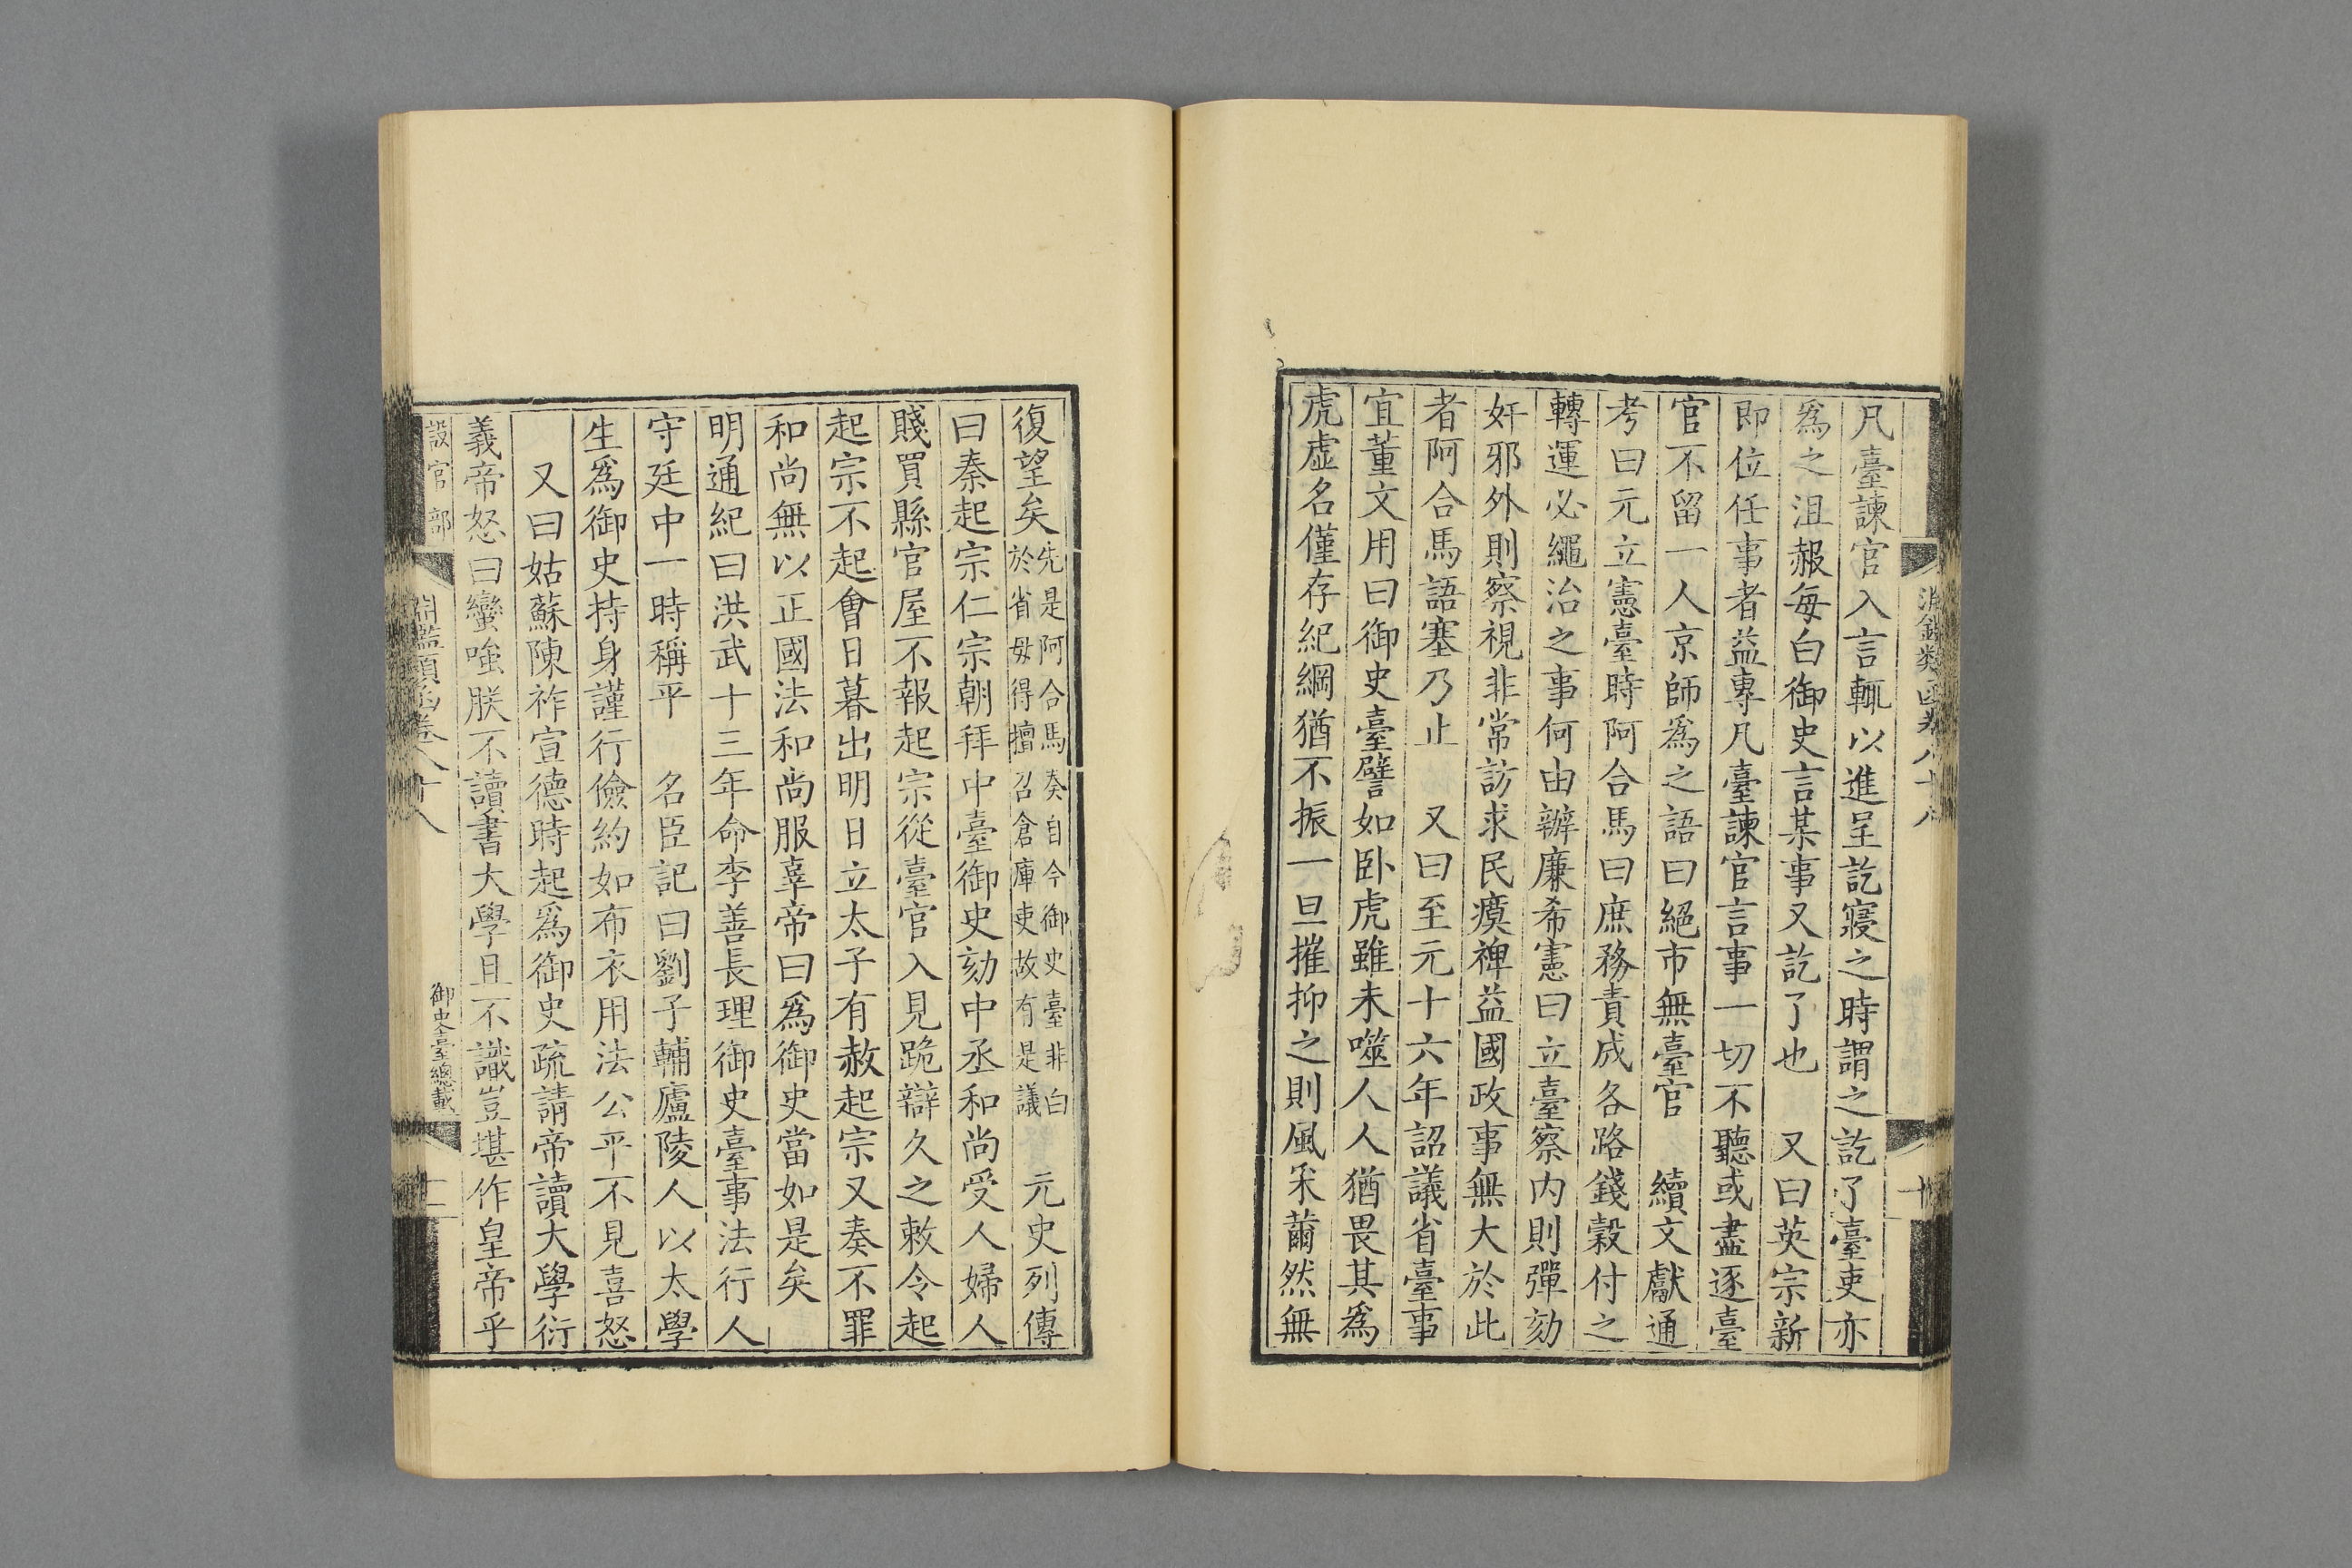 凡臺諫官入言輒以進呈訖寢之時謂之訖了臺吏亦
爲之沮赧每白御史言某事又訖了也　又曰英宗新
即位任事者益專凡臺諫官言事一切不聽或盡逐臺
官不留一人京師爲之語曰絕市無臺官　續文獻通
考曰元立憲臺時阿合馬曰庶務責成各路錢穀付之
轉運必繩治之事何由辦廉希憲曰立臺察內則彈劾
奸邪外則察視非常訪求民瘼裨益國政事無大於此
者阿合馬語塞乃止　又曰至元十六年詔議省臺事
宜董文用曰御史臺譬如卧虎雖未噬人人猶畏其爲
虎虛名僅存紀綱猶不振一旦摧抑之則風采薾然無
復望矣先是阿合馬奏自今御史臺非白
於省毋得擅召倉庫吏故有是議　元史列傳
曰秦起宗仁宗朝拜中臺御史劾中丞和尚受人婦人
賤買縣官屋不報起宗從臺官入見跪辯久之敕令起
起宗不起會日暮出明日立太子有赦起宗又奏不罪
和尚無以正國法和尚服辜帝曰爲御史當如是矣
明通紀曰洪武十三年命李善長理御史臺事法行人
守廷中一時稱平　名臣記曰劉子輔廬陵人以太學
生爲御史持身謹行儉約如布衣用法公平不見喜怒
又曰姑蘇陳祚宣德時起爲御史疏請帝讀大學衍
義帝怒曰蠻嗤朕不讀書大學且不識豈堪作皇帝乎
設官部
淵鑑類函卷八十八
御史臺總載